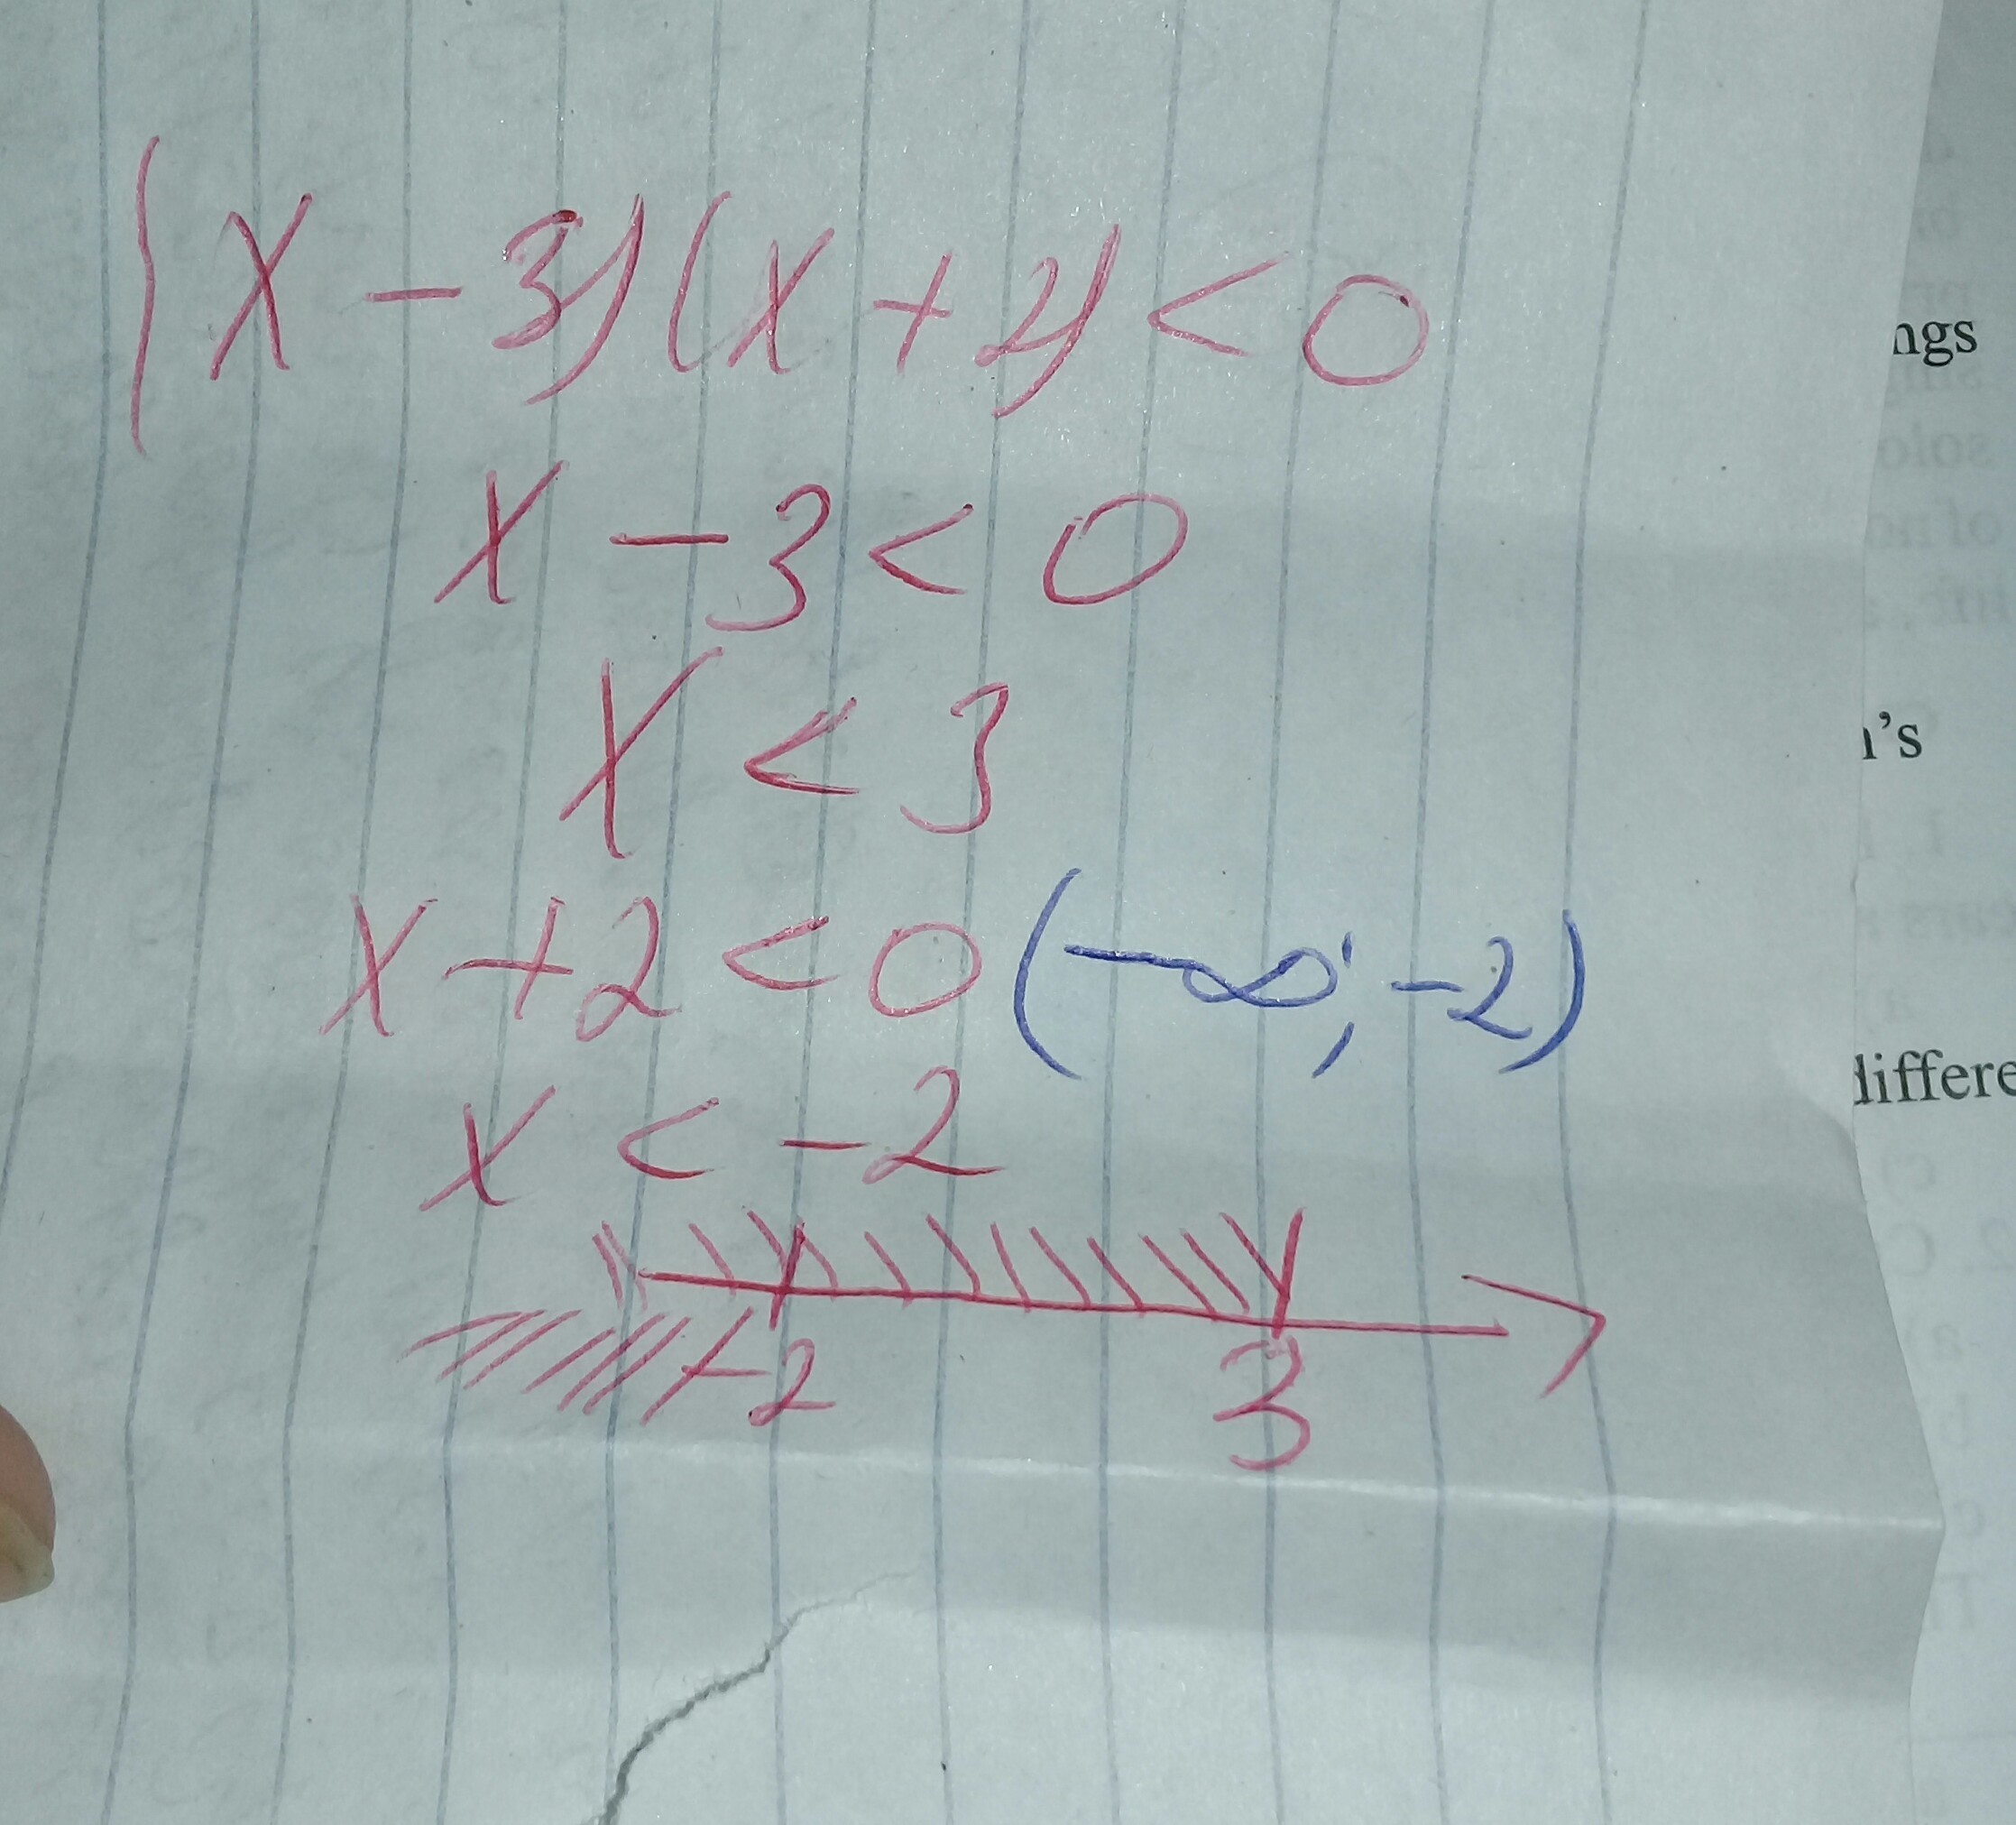 (x - 3)(x + 2) < 0
x - 3 < 0
x < 3
x + 2 < 0 (-∞; -2)
x < -2
-2 3
ngs
n's
differe